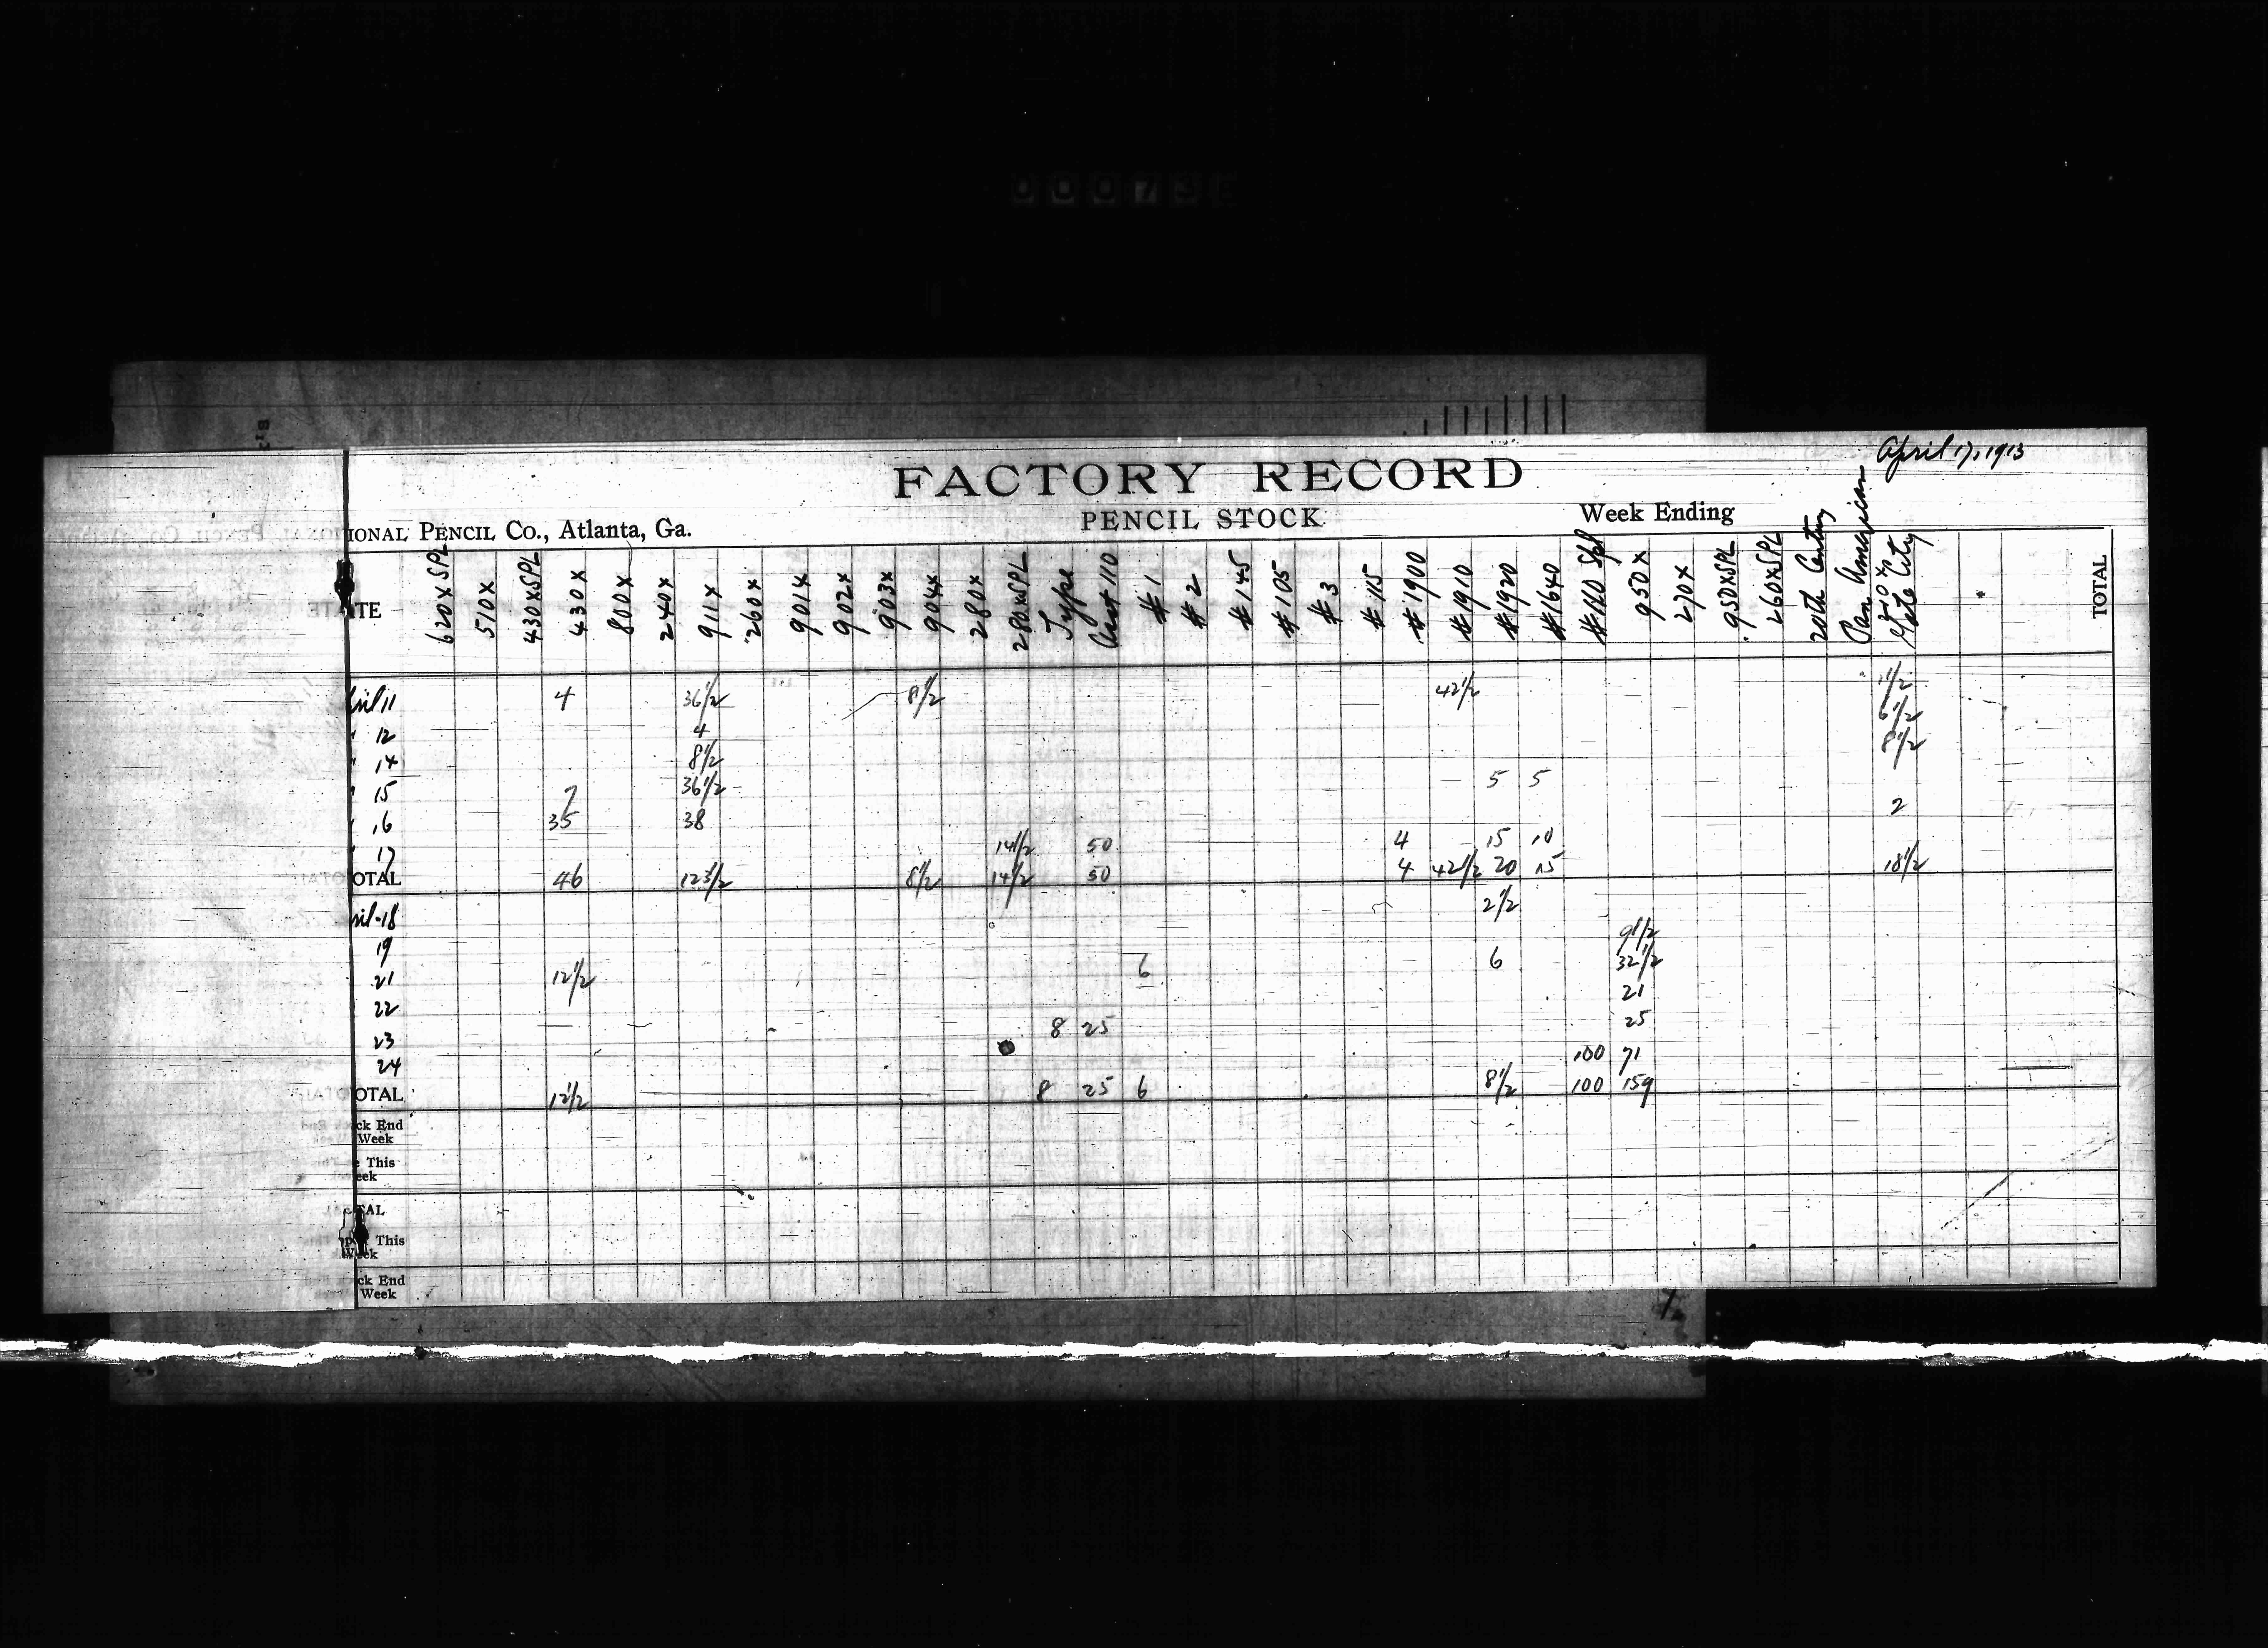 April 17, 1913
FACTORY RECORD
IONAL PENCIL CO., Atlanta, Ga. PENCIL STOCK Week Ending
TE 620xSPL 510x 430xSPL 430x 800x 240x 911x 260x 901x 902x 903x 904x 280x 280xSPL Type Cast 110 #1 #2 #145 #105 #3 #115 #1900 #1910 #1920 #1640 #140 Spl 950x 270x 950xSPL 260xSPL 20th Century Pan American Gate City TOTAL
ril 11 4 36 1/2 8 1/2 42 1/2 1 1/2
" 12 4 6 1/2
" 14 8 1/2 8 1/2
" 15 7 36 1/2 5 5
" 16 35 38 2
" 17 14 1/2 50 4 15 10
OTAL 46 123 1/2 8 1/2 14 1/2 50 4 42 1/2 20 15 18 1/2
ril-18 2 1/2
19 9 1/2
21 12 1/2 6 6 32 1/2
22 21
23 8 25 25
24 100 71
OTAL 12 1/2 8 25 6 8 1/2 100 159
ck End
Week
e This
eek
TAL
This
Week
ck End
Week